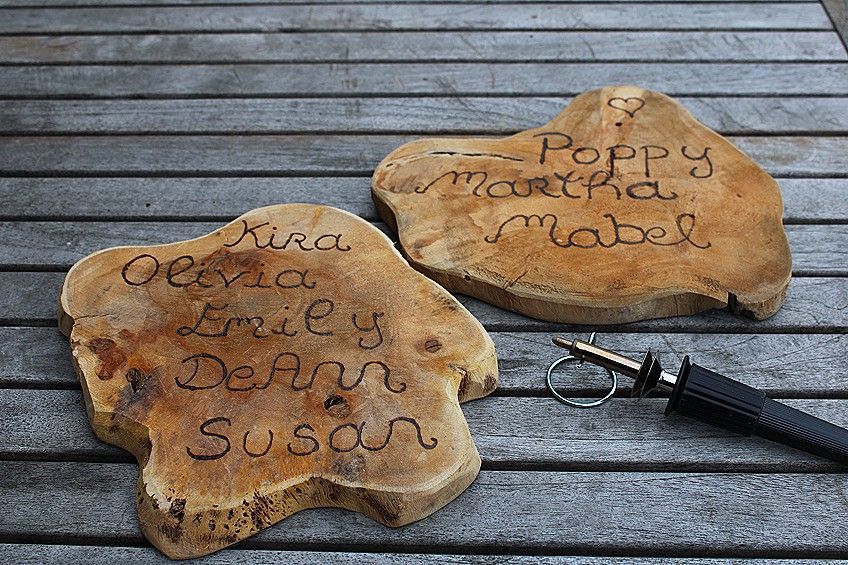 Kira
Olivia
Emily
DeAnn
Susan
Poppy
Martha
Mabel